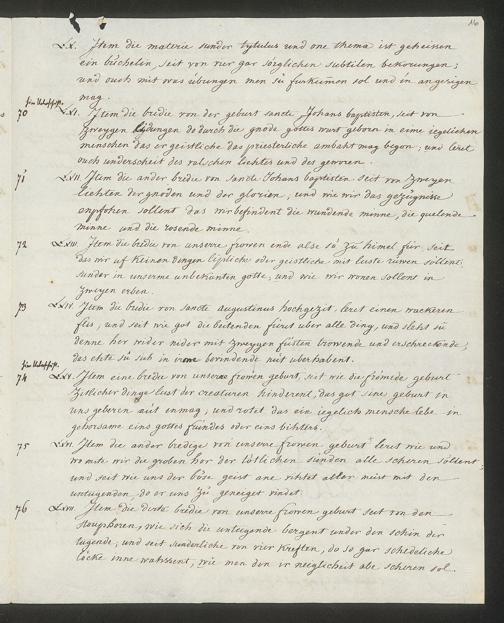 16
LX. Item die materie sunder tytulus und one thema ist geheissen
ein büchelin, seit von vier gar sörglichen subtilen bekorungen;
und ouch mit was übungen men sü furkummen sol und in angesigen
mag.
70 LXI. Item die bredie von der geburt sancte Johans baptisten, seit von
zweygen dingen do durch die gnode gottes wurt geborn in eime iegelichen
menschen das er geistliche das priesterliche ambaht mag began; und leret
ouch underscheit des valschen liehtes und des geworen.
71 LXII. Item die ander bredie von Sancte Johans baptisten seit von zweyen
liehten der gnoden und der glorien, und wie wir das gezügnisse
enpfohen sollent das wir befindent die wundende minne, die quelende
minne und die rosende minne.
72 LXIII. Item die bredie von unserre frowen ende alse sü zu himel für, seit
das wir uf keinen dingen liplich oder geistliche mit luste rüwen söllent
sunder in unserme unbekanten gotte; und wie wir wonen sollent in
zweyen erben.
73 LXIV. Item die bredie von sancte augustinus hochgezit, leret einen wackeren
flis, und seit wie got die beitenden füret uber alle ding, und slehs sü
denne her wider nider mit zweygen füsten trowende und erschreckende;
das ehte sü sich in irme bevindende nüt uberhabent.
74 LXV. Item eine bredie von unserre frowen geburt, seit wie die frömede geburt
zitlicher dinge lust der creaturen hinderent, das got sine geburt in
uns geberen nüt enmag, und rotet das ein iegelich mensche lebe in
gehorsame eins gottes fründes oder eins bihters.
75 LXVI. Item die ander bredige von unserre frowen geburt leret wie und
womitte wir die groben hor der tötlichen sünden alle scheren söllent;
und seit wie uns der böse geist ane vihtet aller meist mit den
untugenden, do er uns zu geneiget vindet.
76 LXVII. Item die dirte bredie von unserre frowen geburt seit von den
houphoren, wie sich die untugende bergent under den schin der
tugende, und seit sunderliche von vier kreften, do so gar schedeliche
löcke inne wahssent, wie men den ir neeglicheit abe scheren sol.